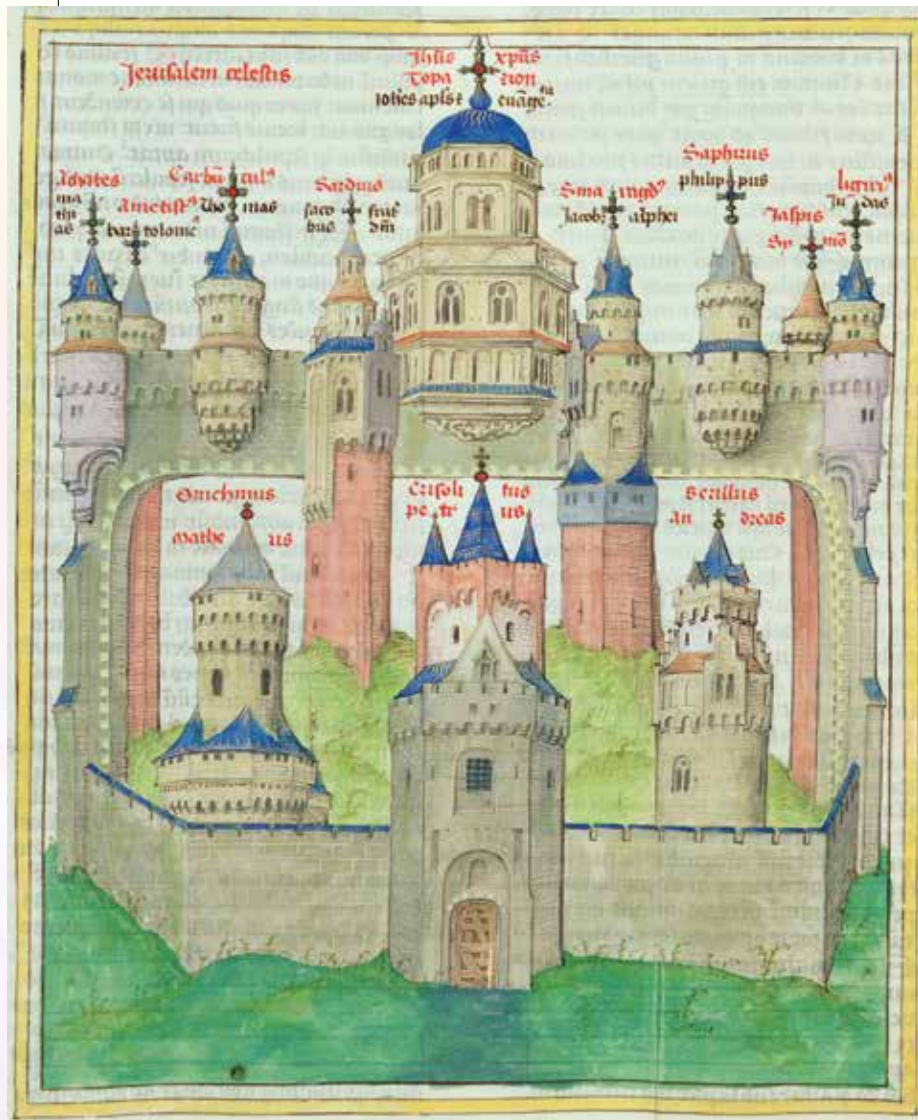 Jerusalem celestis
Jhs xpūs
Topa zion
iohēs apls ⁊ euāge.ta
Achates
ma thi
as
Ametistꝰ
bar tolomeꝰ
Carbū culꝰ
tho mas
Sardius
iaco frat
bus dni
Sma ragdꝰ
Jacobꝰ alphei
Saphirus
philip pus
Jaspis
Sy mō
ligurꝰ
Ju das
Onichinus
mathe us
Crisoli tus
pe tr us
Berillus
an dreas